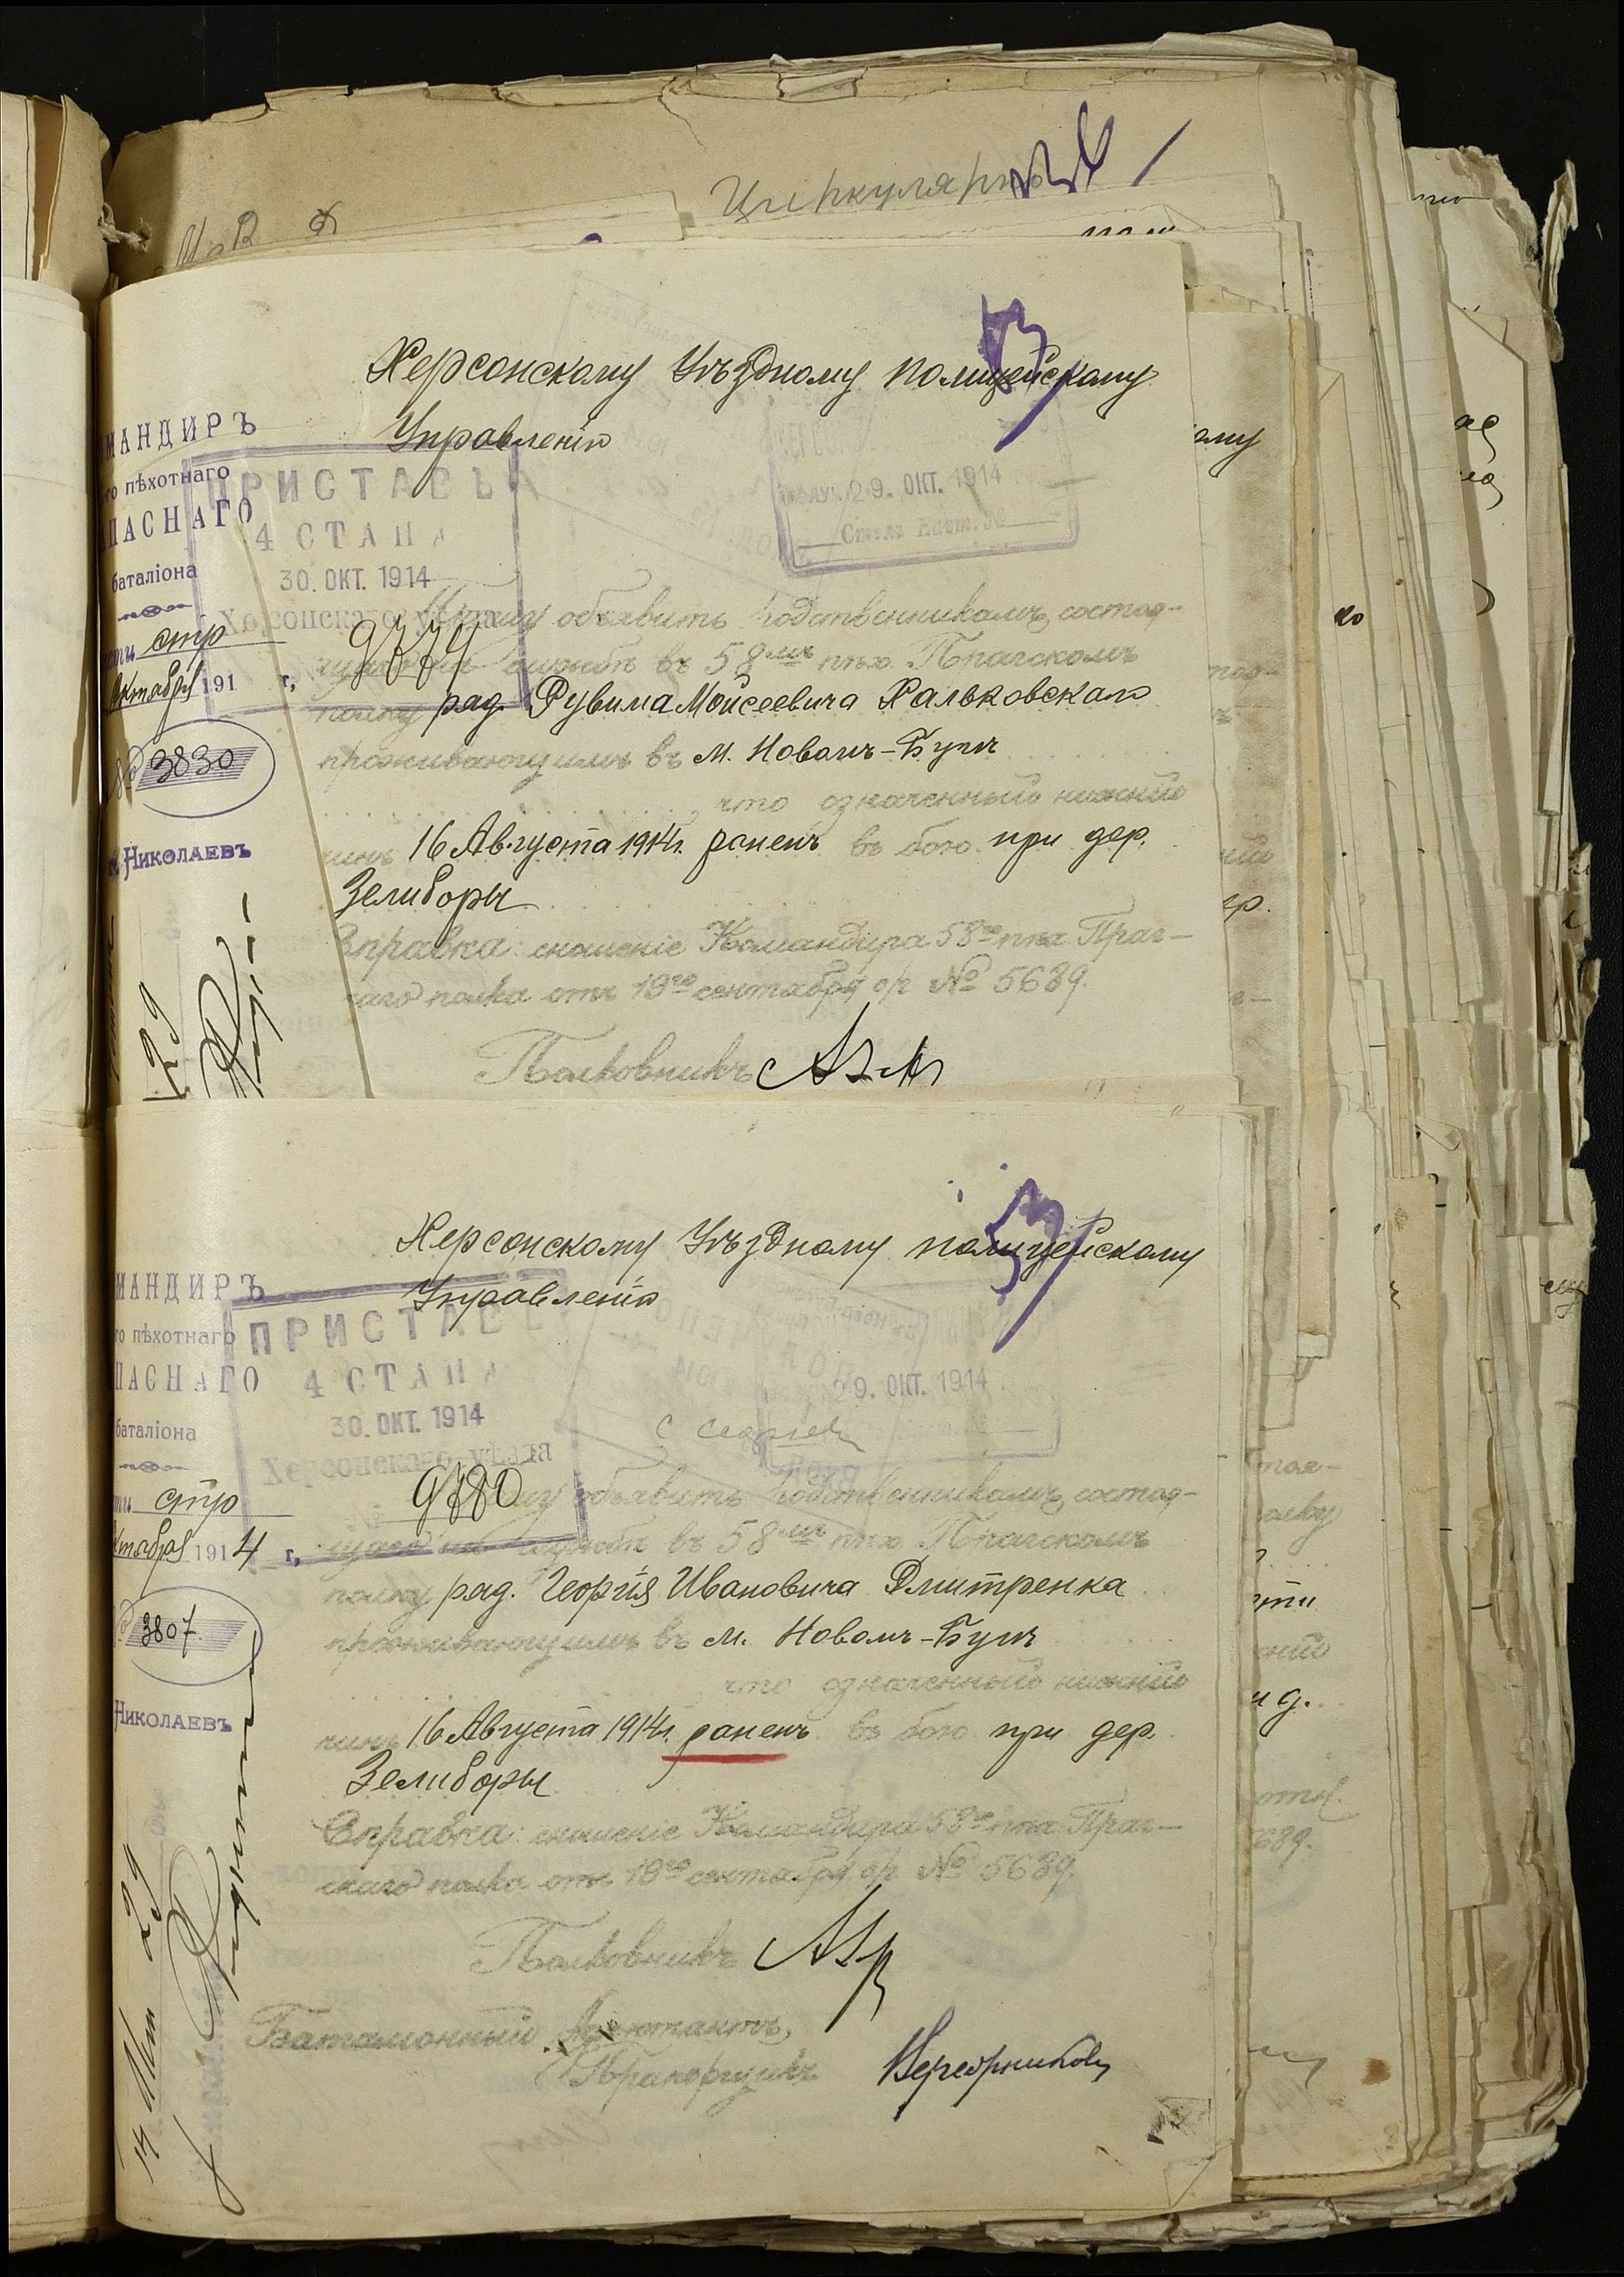 Циркулярно
Херсонскому Уѣздному полицейскому
Управленію
МАНДИРЪ
го пѣхотнаго
ПАСНАГО
баталіона
ПРИСТАВЪ
4 СТАНА
30. ОКТ. 1914
Херсонскаго уѣзда
9779
29. ОКТ. 1914
сти стр
октября 191 г.
№ 3830
г. Николаевъ
Прошу объявить родственникамъ состоя-
щаго на службѣ въ 58мъ пѣх. Прагскомъ
полку ряд. Рувима Мойсеевича Хальковскаго
проживающимъ въ м. Новомъ-Бугѣ
что означенный нижній
чинъ 16 Августа 1914 г. раненъ въ бою при дер.
Зелиборы
Справка: сношеніе Командира 58го пѣх. Праг-
скаго полка отъ 19го сентября с/г № 5689.
Полковникъ
Херсонскому Уѣздному полицейскому
Управленію
МАНДИРЪ
го пѣхотнаго
ПАСНАГО
баталіона
ПРИСТАВЪ
4 СТАНА
30. ОКТ. 1914
Херсонскаго уѣзда
9780
29. ОКТ. 1914
сти стр
октября 1914 г.
№ 3807
Николаевъ
Прошу объявить родственникамъ состоя-
щаго на службѣ въ 58мъ пѣх. Прагскомъ
полку ряд. Георгія Ивановича Дмитренка
проживающимъ въ м. Новомъ-Бугѣ
что означенный нижній
чинъ 16 Августа 1914 г. раненъ въ бою при дер.
Зелиборы
Справка: сношеніе Командира 58го пѣх. Праг-
скаго полка отъ 19го сентября с/г № 5689.
Полковникъ
Баталіонный Адъютантъ,
Прапорщикъ